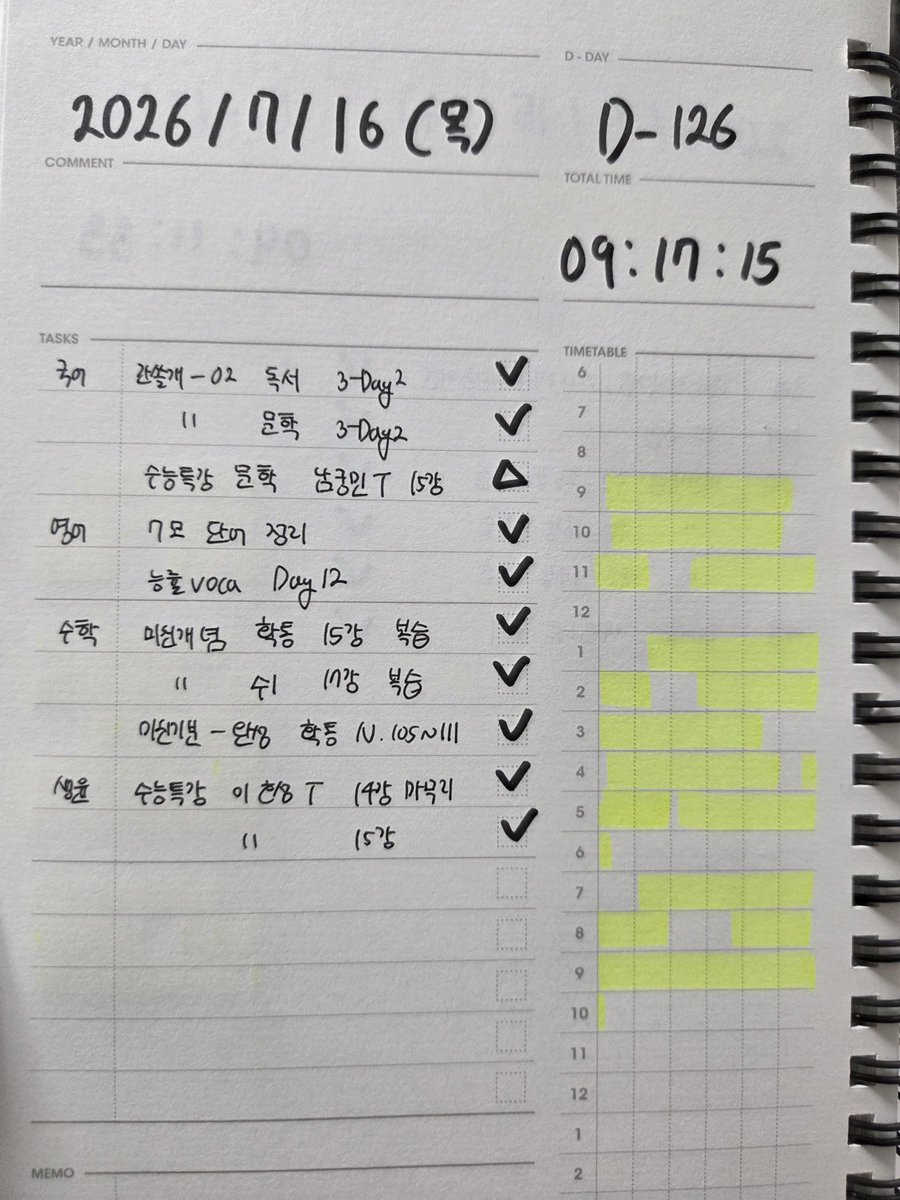 YEAR / MONTH / DAY
D - DAY
2026 / 7 / 16 (목)
D-126
COMMENT
TOTAL TIME
09:17:15
TASKS
국어 관쓸개 - 02 독서 3-Day2
〃 문학 3-Day2
수능특강 문학 남궁민T 15강
영어 7모 단어 정리
능률 voca Day 12
수학 미친개념 확통 15강 복습
〃 수1 17강 복습
미친기분 - 완성 확통 N.105~111
생윤 수능특강 이 T 14강 마무리
〃 15강
MEMO
TIMETABLE
6
7
8
9
10
11
12
1
2
3
4
5
6
7
8
9
10
11
12
1
2